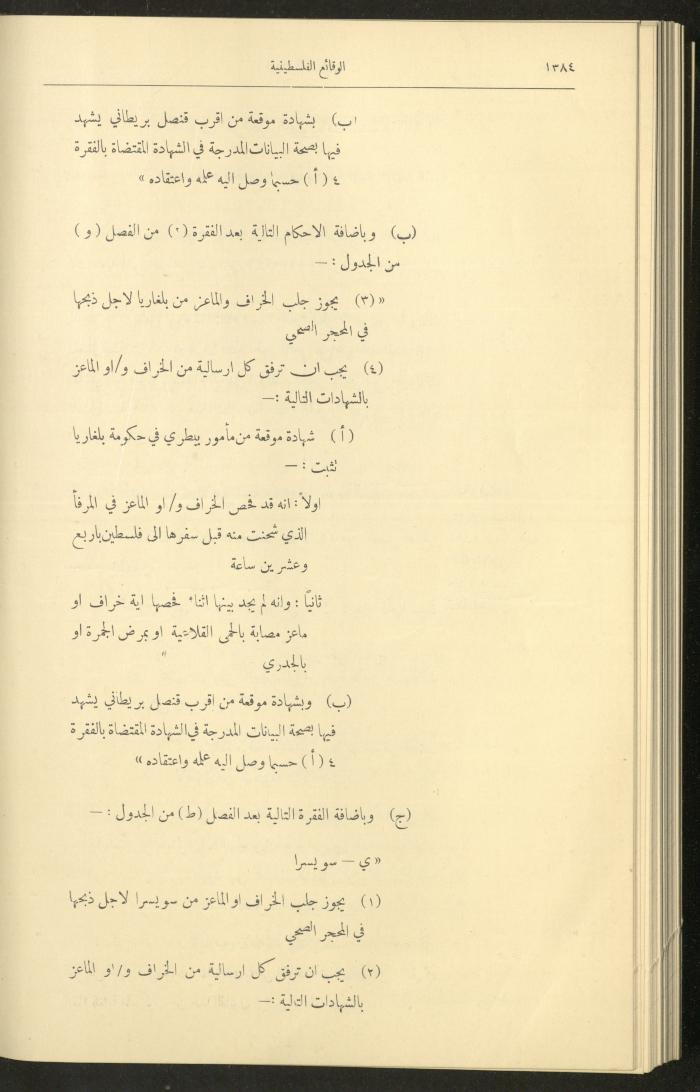 ١٣٨٤ الوقائع الفلسطينية
(ب) بشهادة موقعة من اقرب قنصل بريطاني يشهد
فيها بصحة البيانات المدرجة في الشهادة المقتضاة بالفقرة
٤ (أ) حسبما وصل اليه علمه واعتقاده »
(ب) وباضافة الاحكام التالية بعد الفقرة (٢) من الفصل (و)
من الجدول : —
« (٣) يجوز جلب الخراف والماعز من بلغاريا لاجل ذبحها
في المحجر الصحي
(٤) يجب ان ترفق كل ارسالية من الخراف و/او الماعز
بالشهادات التالية :—
(أ) شهادة موقعة من مأمور بيطري في حكومة بلغاريا
تثبت : —
اولاً : انه قد فحص الخراف و/او الماعز في المرفأ
الذي شحنت منه قبل سفرها الى فلسطين باربع
وعشرين ساعة
ثانيًا : وانه لم يجد بينها اثناء فحصها اية خراف او
ماعز مصابة بالحمى القلاعية او بمرض الجمرة او
بالجدري »
(ب) وبشهادة موقعة من اقرب قنصل بريطاني يشهد
فيها بصحة البيانات المدرجة في الشهادة المقتضاة بالفقرة
٤ (أ) حسبما وصل اليه علمه واعتقاده »
(ج) وباضافة الفقرة التالية بعد الفصل (ط) من الجدول : —
« ي — سويسرا
(١) يجوز جلب الخراف او الماعز من سويسرا لاجل ذبحها
في المحجر الصحي
(٢) يجب ان ترفق كل ارسالية من الخراف و/او الماعز
بالشهادات التالية :—